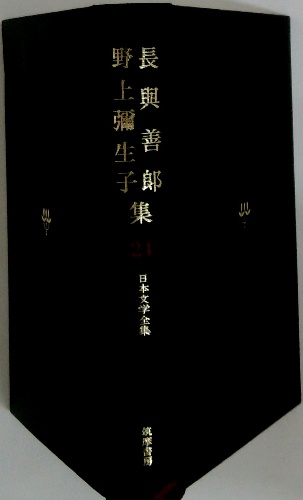 長與善郎
野上彌生子
集
21
日本文学全集
筑摩書房